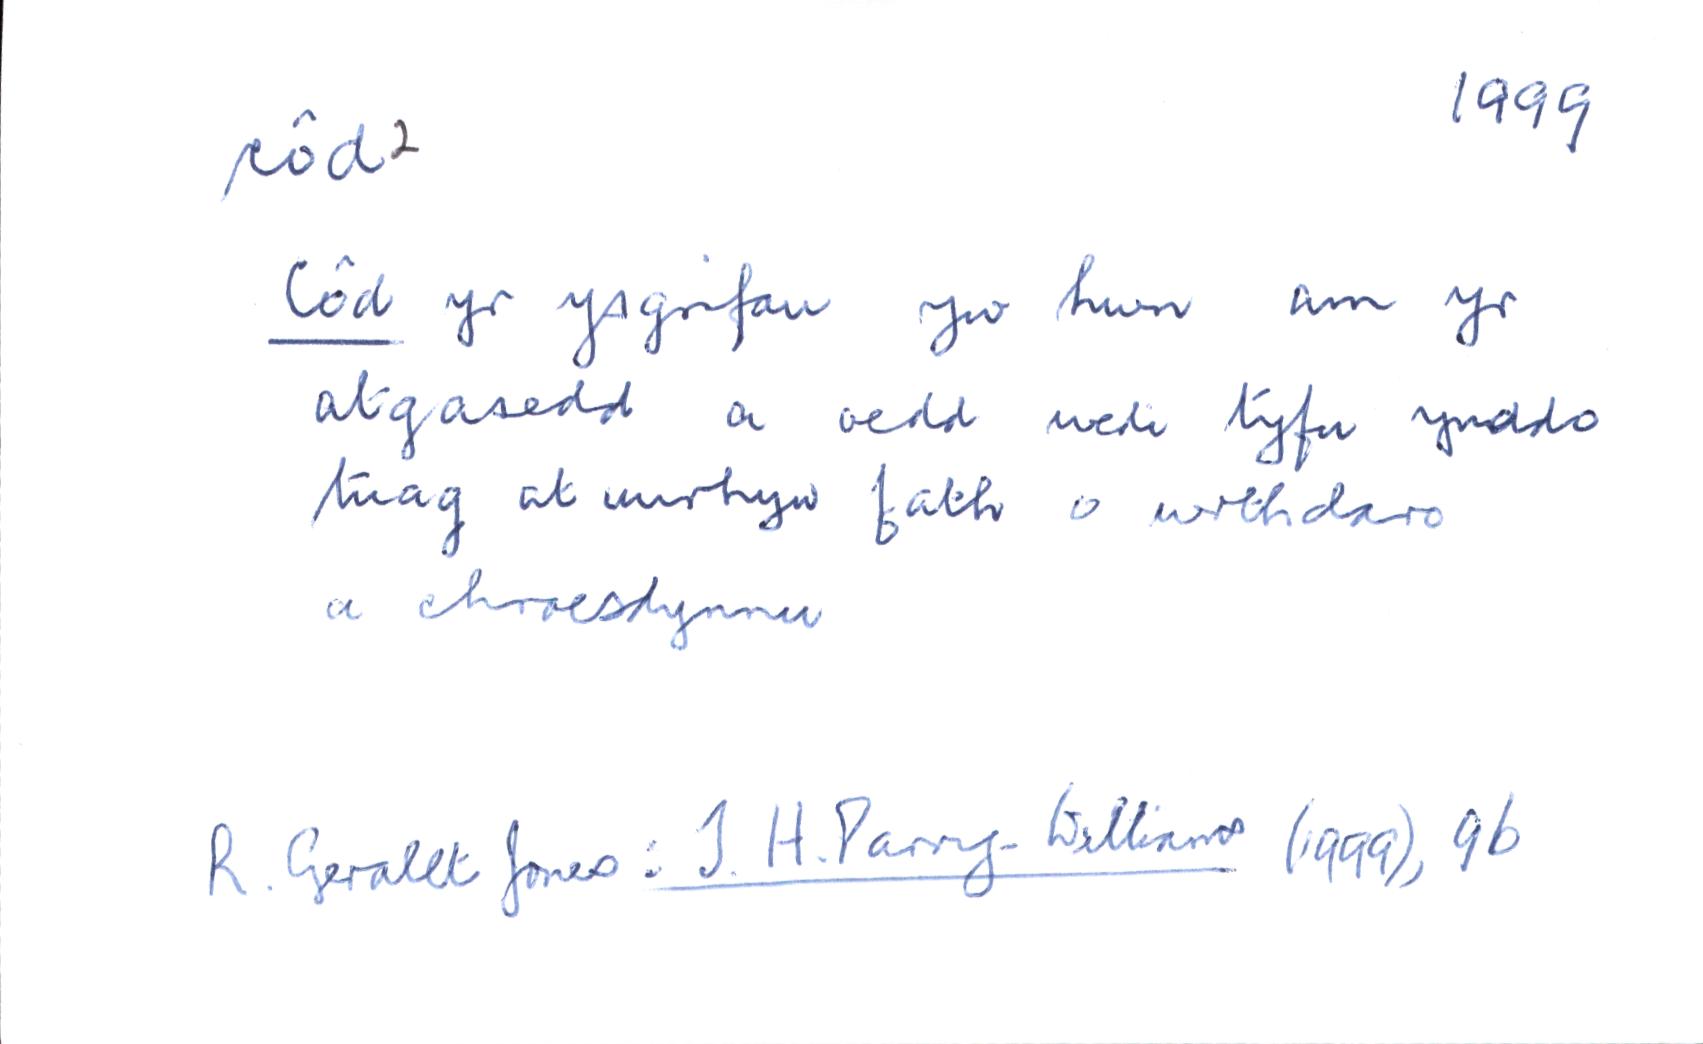 1999
côd²
Côd yr ysgrifau yw hwn am yr
atgasedd a oedd wedi tyfu ynddo
tuag at unrhyw fath o wrthdaro
a chroesdynnu
R. Gerallt Jones: T. H. Parry-Williams (1999), 96